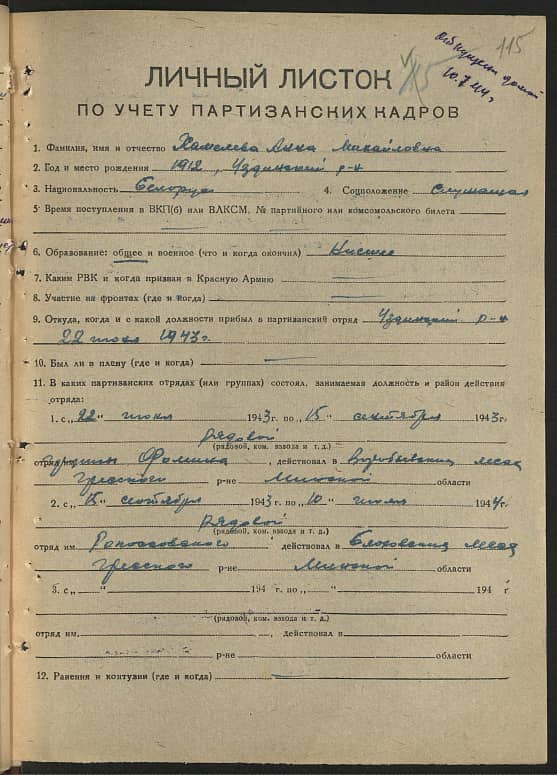 115
10.7.44г.
115
ЛИЧНЫЙ ЛИСТОК
ПО УЧЕТУ ПАРТИЗАНСКИХ КАДРОВ
1. Фамилия, имя и отчество Анна Михайловна
2. Год и место рождения 1912, Узденский р-н
3. Национальность Белорус 4. Соцположение Служащая
5. Время поступления в ВКП(б) или ВЛКСМ, № партийного или комсомольского билета —
6. Образование: общее и военное (что и когда окончил) Низшее
7. Каким РВК и когда призван в Красную Армию —
8. Участие на фронтах (где и когда) —
9. Откуда, когда и с какой должности прибыл в партизанский отряд Узденский р-н
22 июня 1943г.
10. Был ли в плену (где и когда) —
11. В каких партизанских отрядах (или группах) состоял, занимаемая должность и район действия
отряда:
1. с „22" июня 1943 г. по „15" сентября 1943 г.
рядовой
(рядовой, ком. взвода и т. д.)
отряд группы Фомина, действовал в лесах
Гресского р-не Минской области
2. с „15" сентября 1943 г. по „10" июля 1944 г.
рядовой
(рядовой, ком. взвода и т. д.)
отряд им. Рокоссовского действовал в лесах
Гресского р-не Минской области
3. с „ " 194 г. по „ " 194 г
(рядовой, ком. взвода и т. д.)
отряд им. , действовал в
р-не области
12. Ранения и контузии (где и когда) —